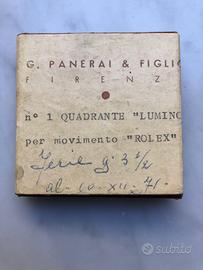 G. PANERAI & FIGLI
FIRENZ
n° 1 QUADRANTE "LUMINO
per movimento "ROLEX"
Serie g. 3 1/2
al- 10-XII-71-
subito